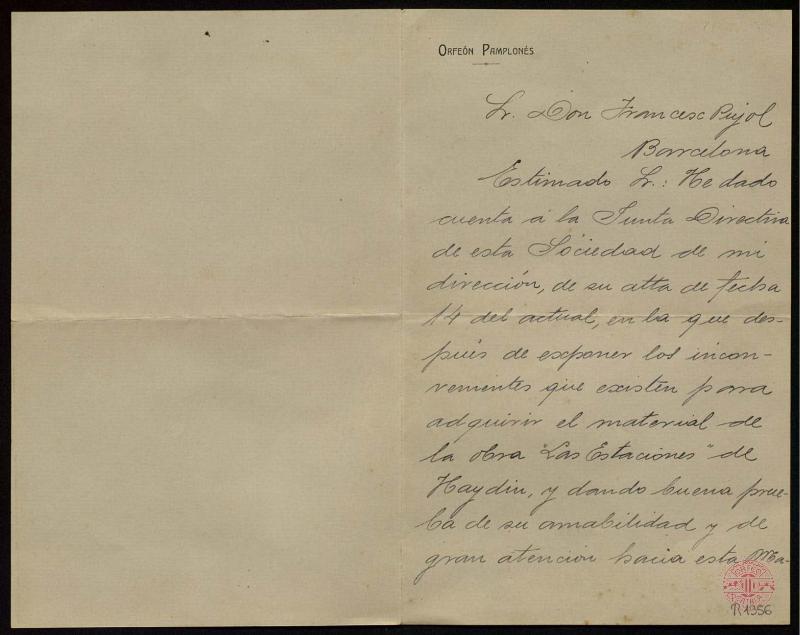 ORFEÓN PAMPLONÉS
Sr. Don Francesc Pujol
Barcelona
Estimado Sr.: He dado
cuenta á la Junta Directiva
de esta Sociedad de mi
dirección, de su atta de fecha
14 del actual, en la que des-
pués de exponer los incon-
venientes que existen para
adquirir el material de
la obra "Las Estaciones" de
Haydin, y dando buena prue-
ba de su amabilidad y de
gran atención hacia esta Ma-
ORFEÓ
R 1956